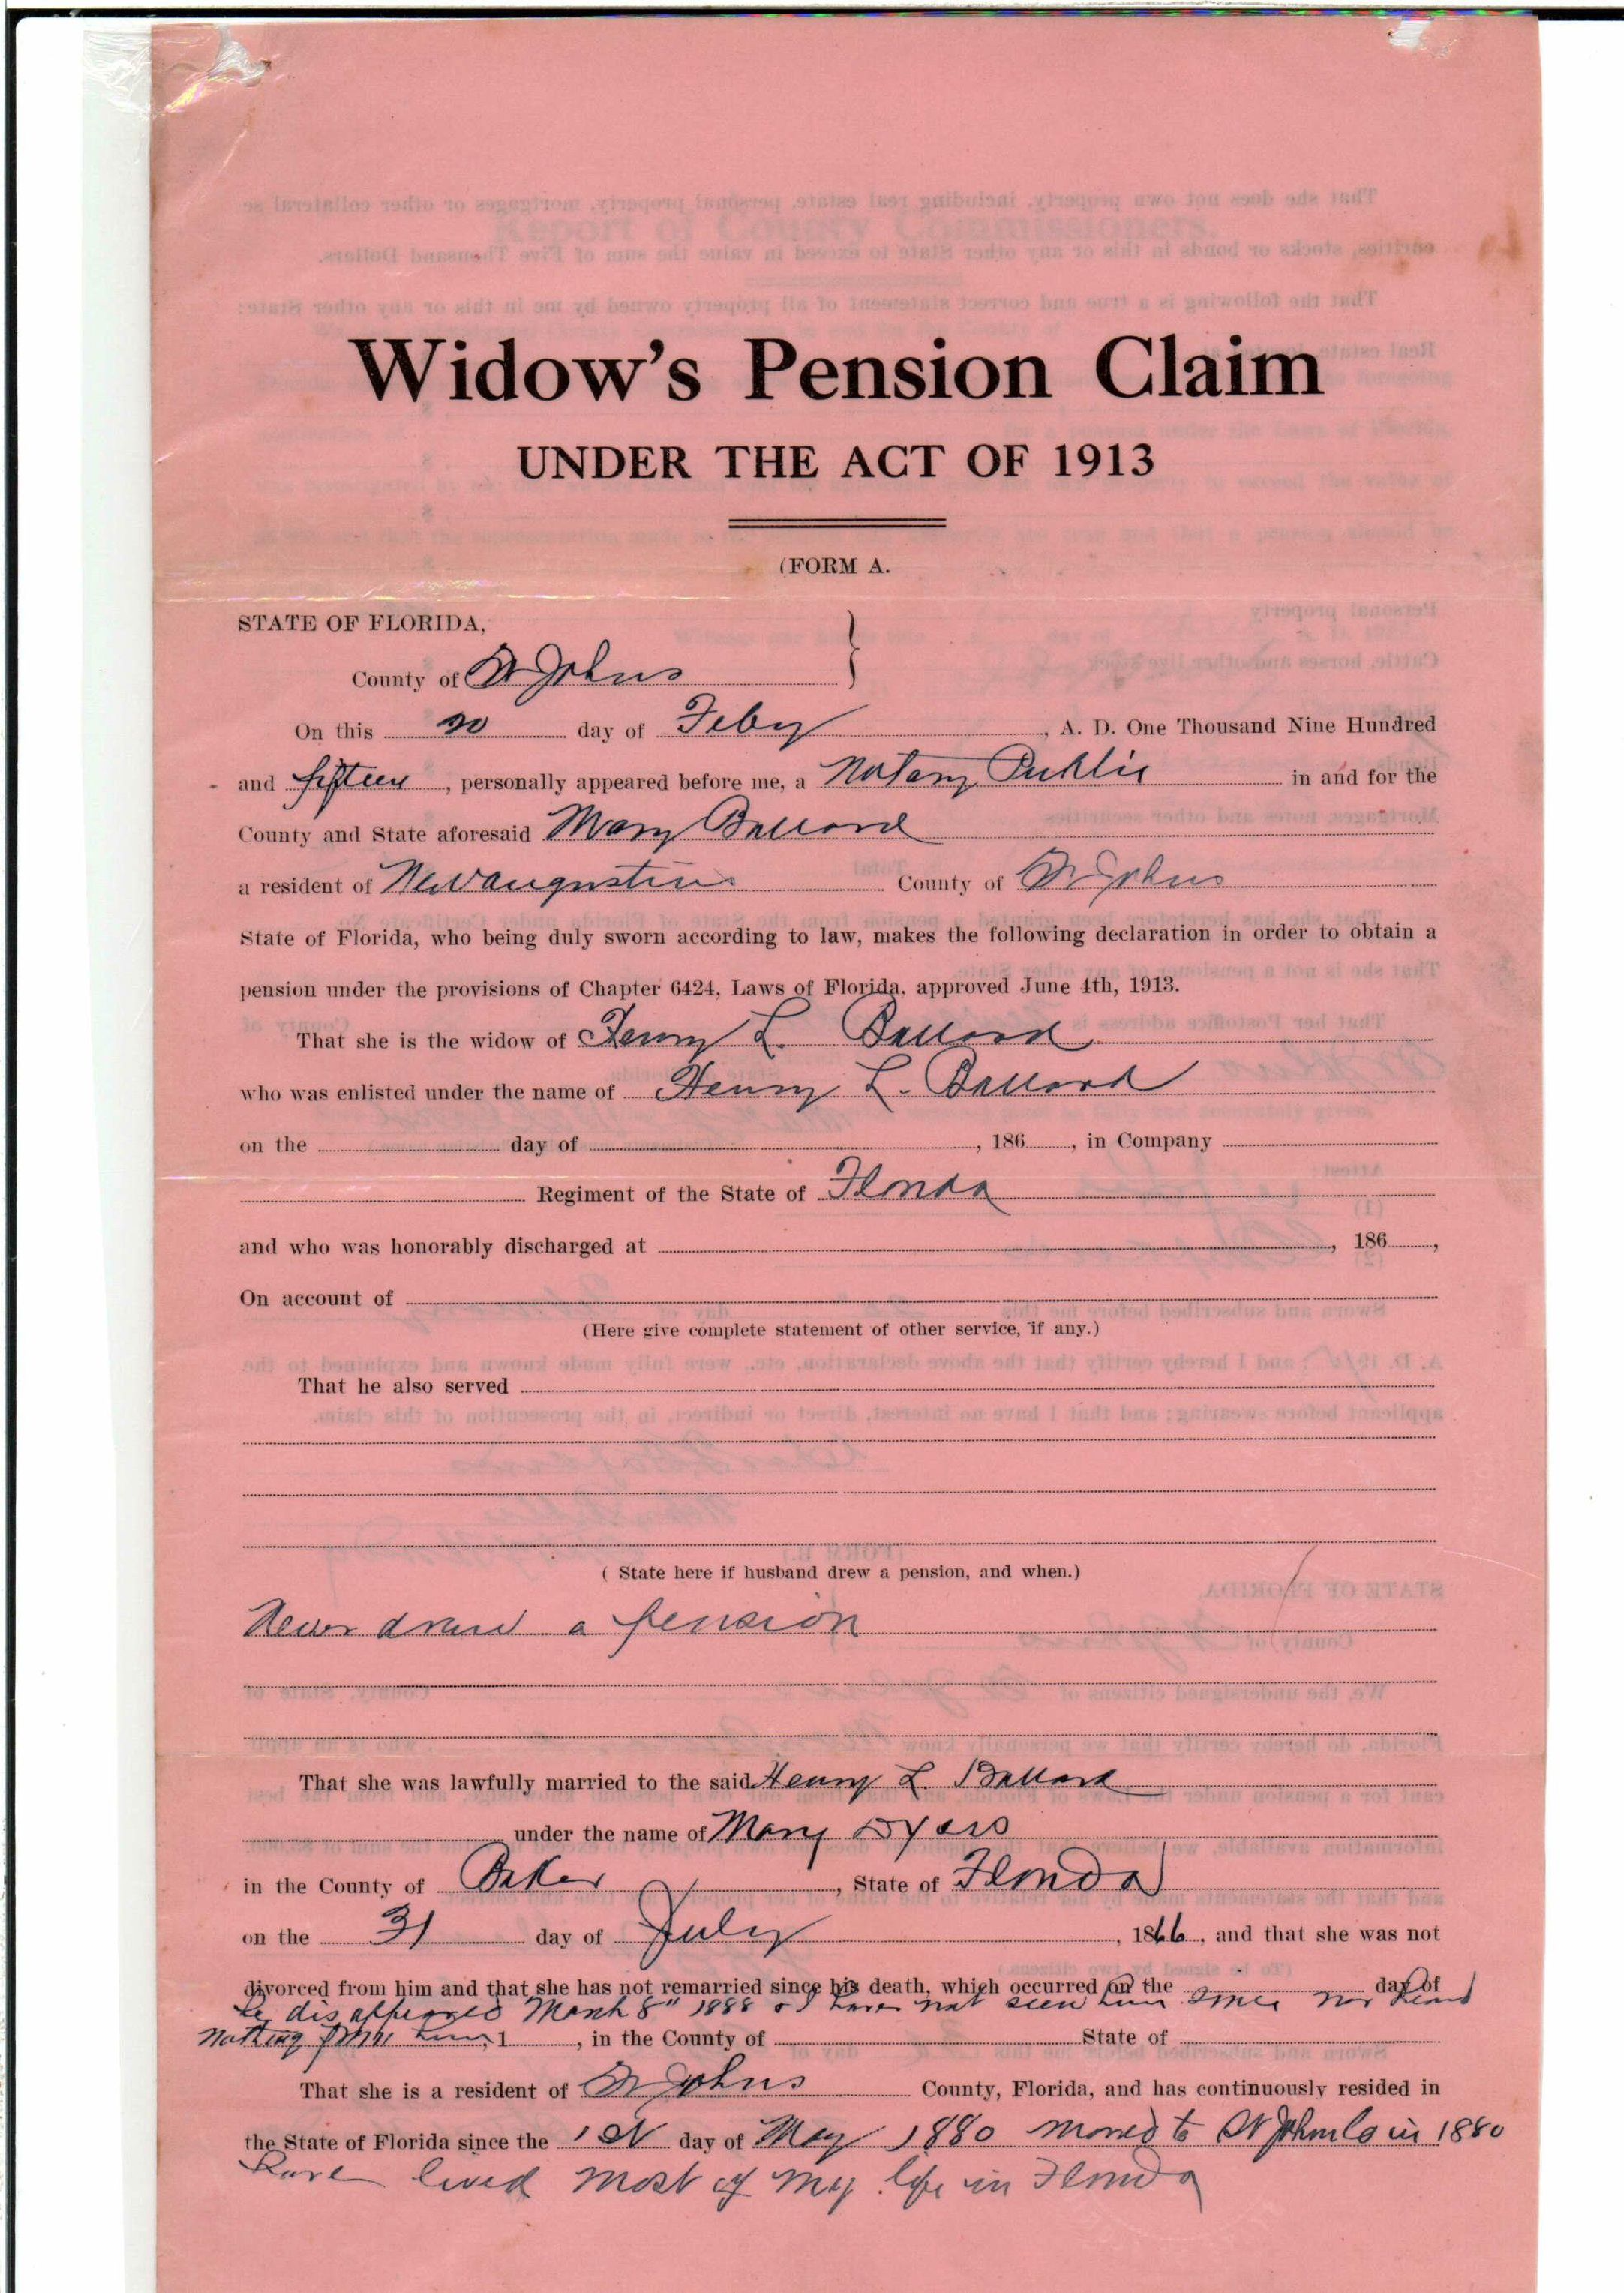 Widow's Pension Claim
UNDER THE ACT OF 1913
(FORM A.
STATE OF FLORIDA,
County of St Johns
On this 20 day of Feby, A. D. One Thousand Nine Hundred
and fifteen, personally appeared before me, a Notary Public in and for the
County and State aforesaid Mary Ballard
a resident of New augustine County of St Johns
State of Florida, who being duly sworn according to law, makes the following declaration in order to obtain a
pension under the provisions of Chapter 6424, Laws of Florida, approved June 4th, 1913.
That she is the widow of Henry L. Ballard
who was enlisted under the name of Henry L. Ballard
on the day of , 186 , in Company
Regiment of the State of Florida
and who was honorably discharged at , 186 ,
On account of
(Here give complete statement of other service, if any.)
That he also served
( State here if husband drew a pension, and when.)
Never drew a pension
That she was lawfully married to the said Henry L. Ballard
under the name of Mary Dyess
in the County of Baker, State of Florida
on the 31 day of July, 1866, and that she was not
divorced from him and that she has not remarried since his death, which occurred on the day of
he disappeared March 8" 1888 & I have not seen him since nor heard
nothing from him, 1 , in the County of State of
That she is a resident of St Johns County, Florida, and has continuously resided in
the State of Florida since the 1st day of May 1880 moved to St Johns Co in 1880
Have lived most of my life in Florida